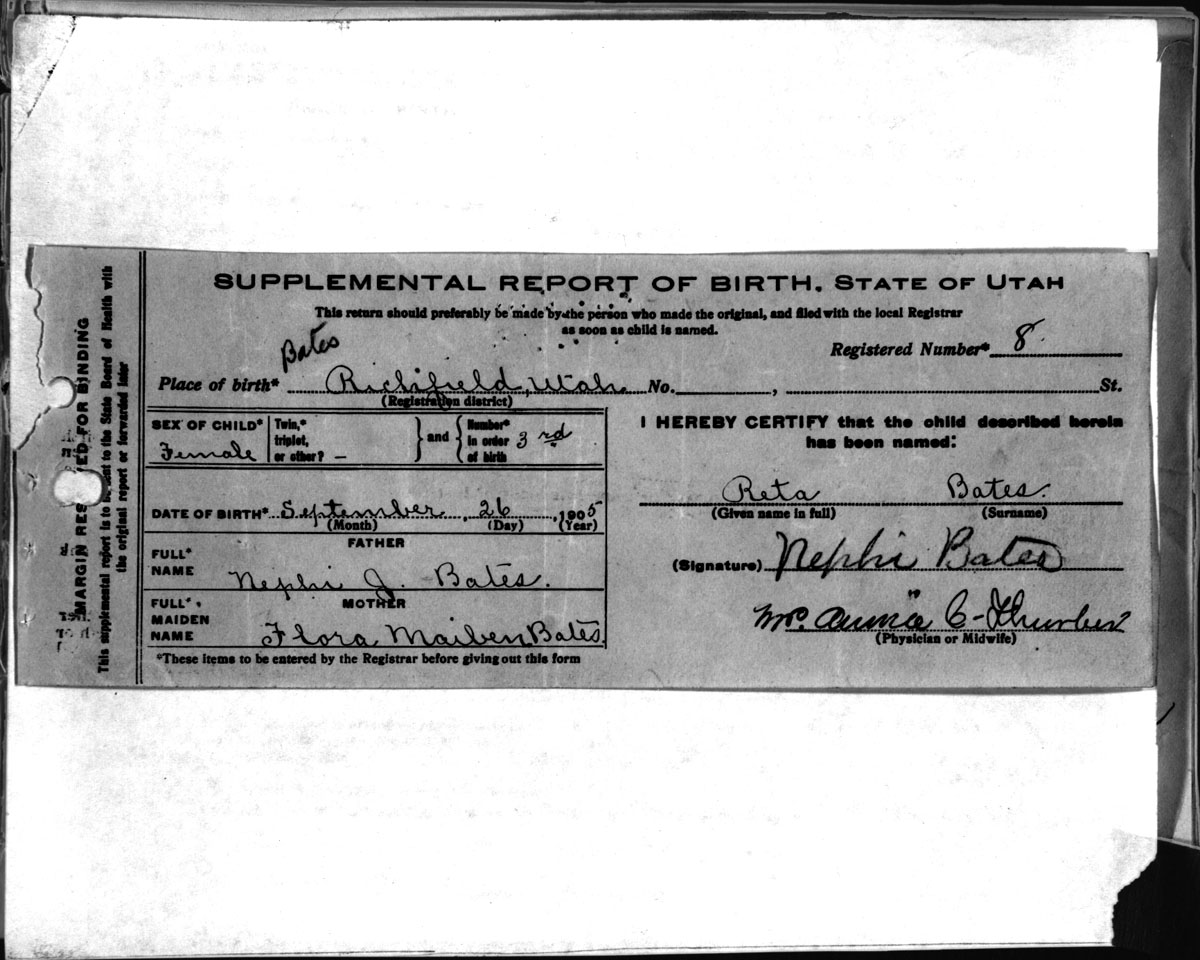 SUPPLEMENTAL REPORT OF BIRTH, STATE OF UTAH
This return should preferably be made by the person who made the original, and filed with the local Registrar
as soon as child is named.
Bates
Registered Number* 8
Place of birth* Richfield, Utah. No. , St.
(Registration district)
SEX OF CHILD* Female
Twin,* triplet, or other? –
and
Number* in order of birth 3rd
DATE OF BIRTH* September, 26, 1905
(Month) (Day) (Year)
FATHER
FULL* NAME Nephi J. Bates.
MOTHER
FULL* MAIDEN NAME Flora Maiben Bates.
*These items to be entered by the Registrar before giving out this form
I HEREBY CERTIFY that the child described herein
has been named:
Reta Bates.
(Given name in full) (Surname)
(Signature) Nephi Bates
Mrs. Annie C. Thurber
(Physician or Midwife)
MARGIN RES ED FOR BINDING
This supplemental report is to be sent to the State Board of Health with
the original report or forwarded later